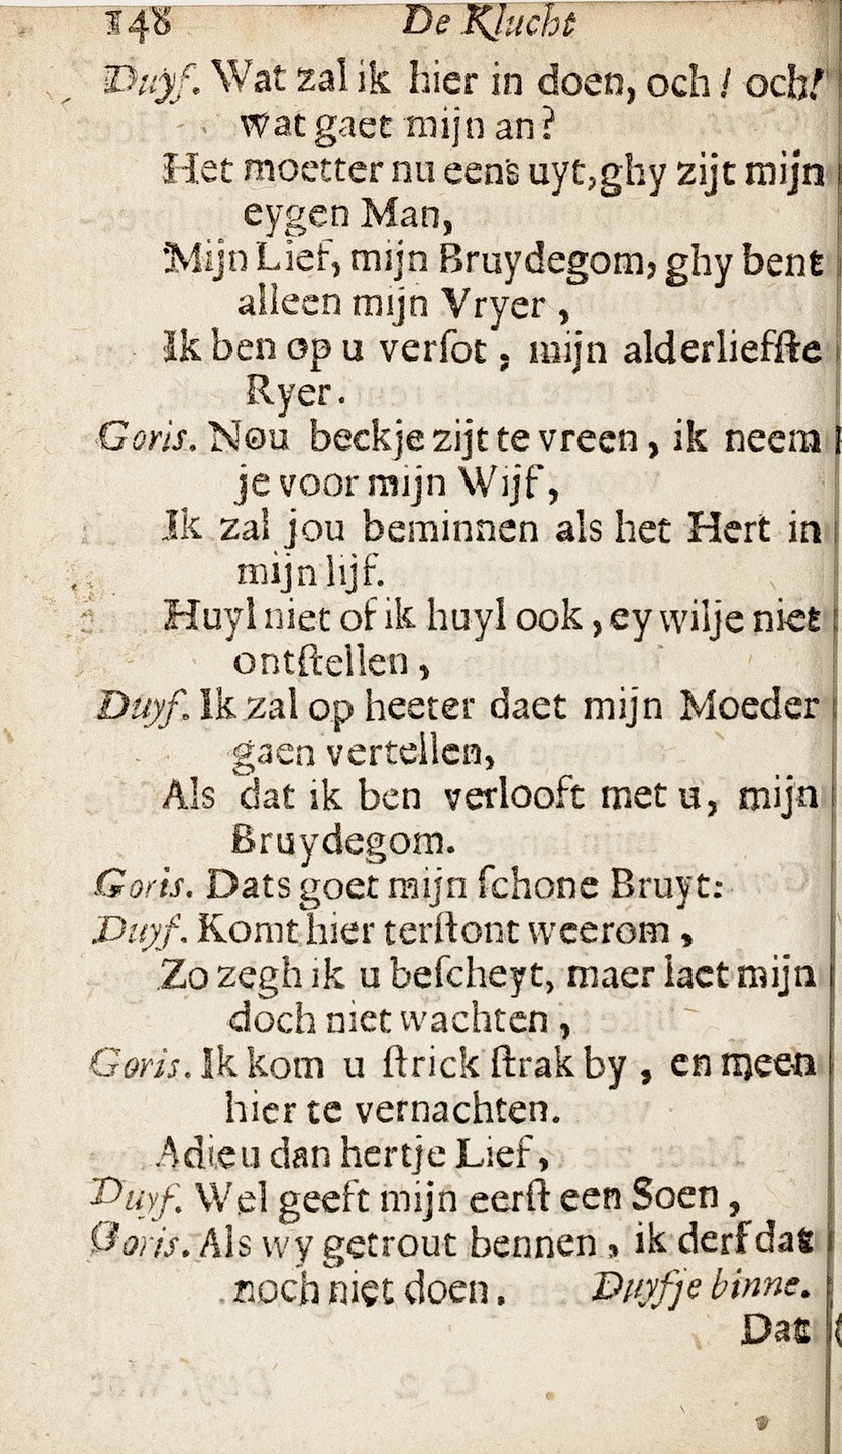 148 De Klucht
Duyf. Wat zal ik hier in doen, och! och!
wat gaet mijn an?
Het moetter nu eens uyt, ghy zijt mijn
eygen Man,
Mijn Lief, mijn Bruydegom, ghy bent
alleen mijn Vryer,
Ik ben op u verſot, mijn alderliefſte
Ryer.
Goris. Nou beckje zijt te vreen, ik neem
je voor mijn Wijf,
Ik zal jou beminnen als het Hert in
mijn lijf.
Huyl niet of ik huyl ook, ey wilje niet
ontſtellen,
Duyf. Ik zal op heeter daet mijn Moeder
gaen vertellen,
Als dat ik ben verlooft met u, mijn
Bruydegom.
Goris. Dats goet mijn ſchone Bruyt:
Duyf. Komt hier terſtont weerom,
Zo zegh ik u beſcheyt, maer laet mijn
doch niet wachten,
Goris. Ik kom u ſtrick ſtrak by, en meen
hier te vernachten.
Adieu dan hertje Lief,
Duyf. Wel geeft mijn eerſt een Soen,
Goris. Als wy getrout bennen, ik derf dat
noch niet doen. Duyfje binne.
Dat